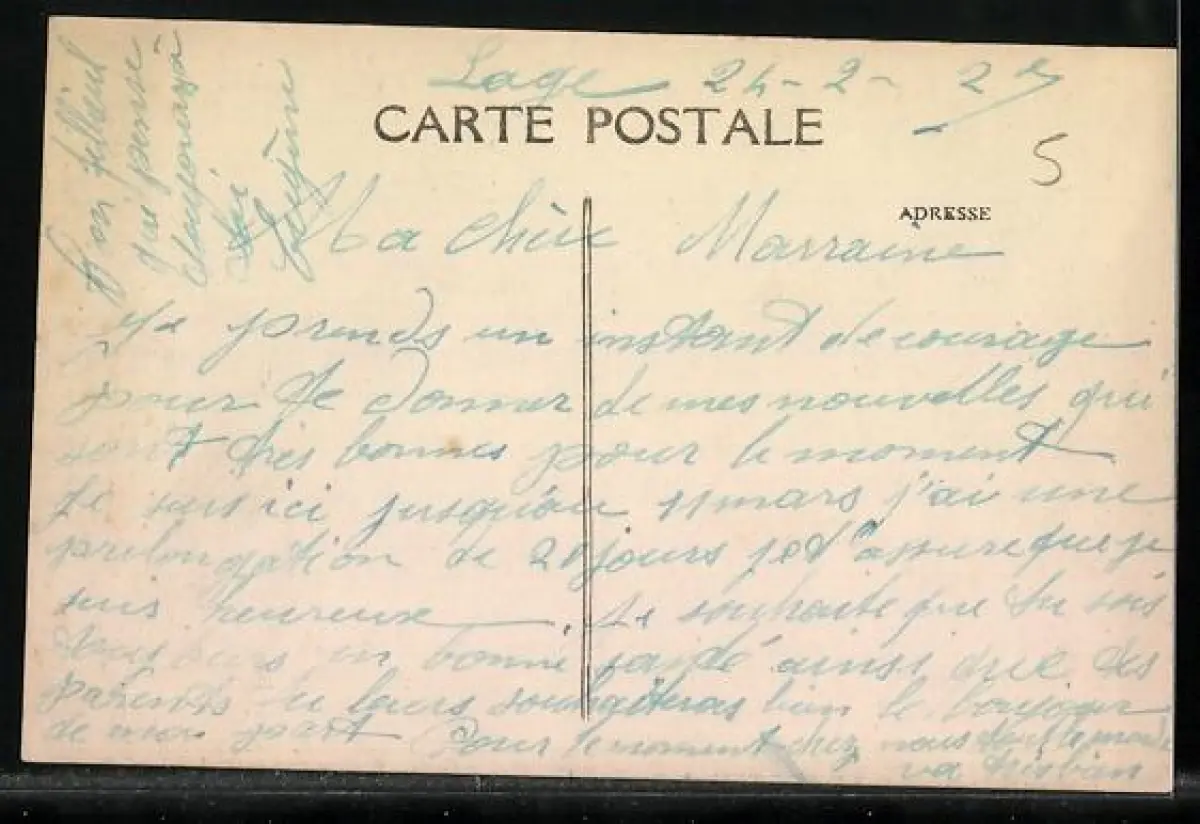 24-2-
CARTE POSTALE
5
ADRESSE
Ma chère Marraine
Je prends un instant de courage
pour te donner de mes nouvelles qui
sont très bonnes pour le moment
je suis ici jusqu'au 11 mars j'ai une
prolongation de 20 jours je t'assure que je
suis heureuse. Je souhaite que tu sois
toujours en bonne santé ainsi que tes
parents tu leurs souhaiteras bien le bonjour
de mon part Pour le moment chez nous tout le monde
va très bien
Ton filleul
qui pense
toujours à
toi